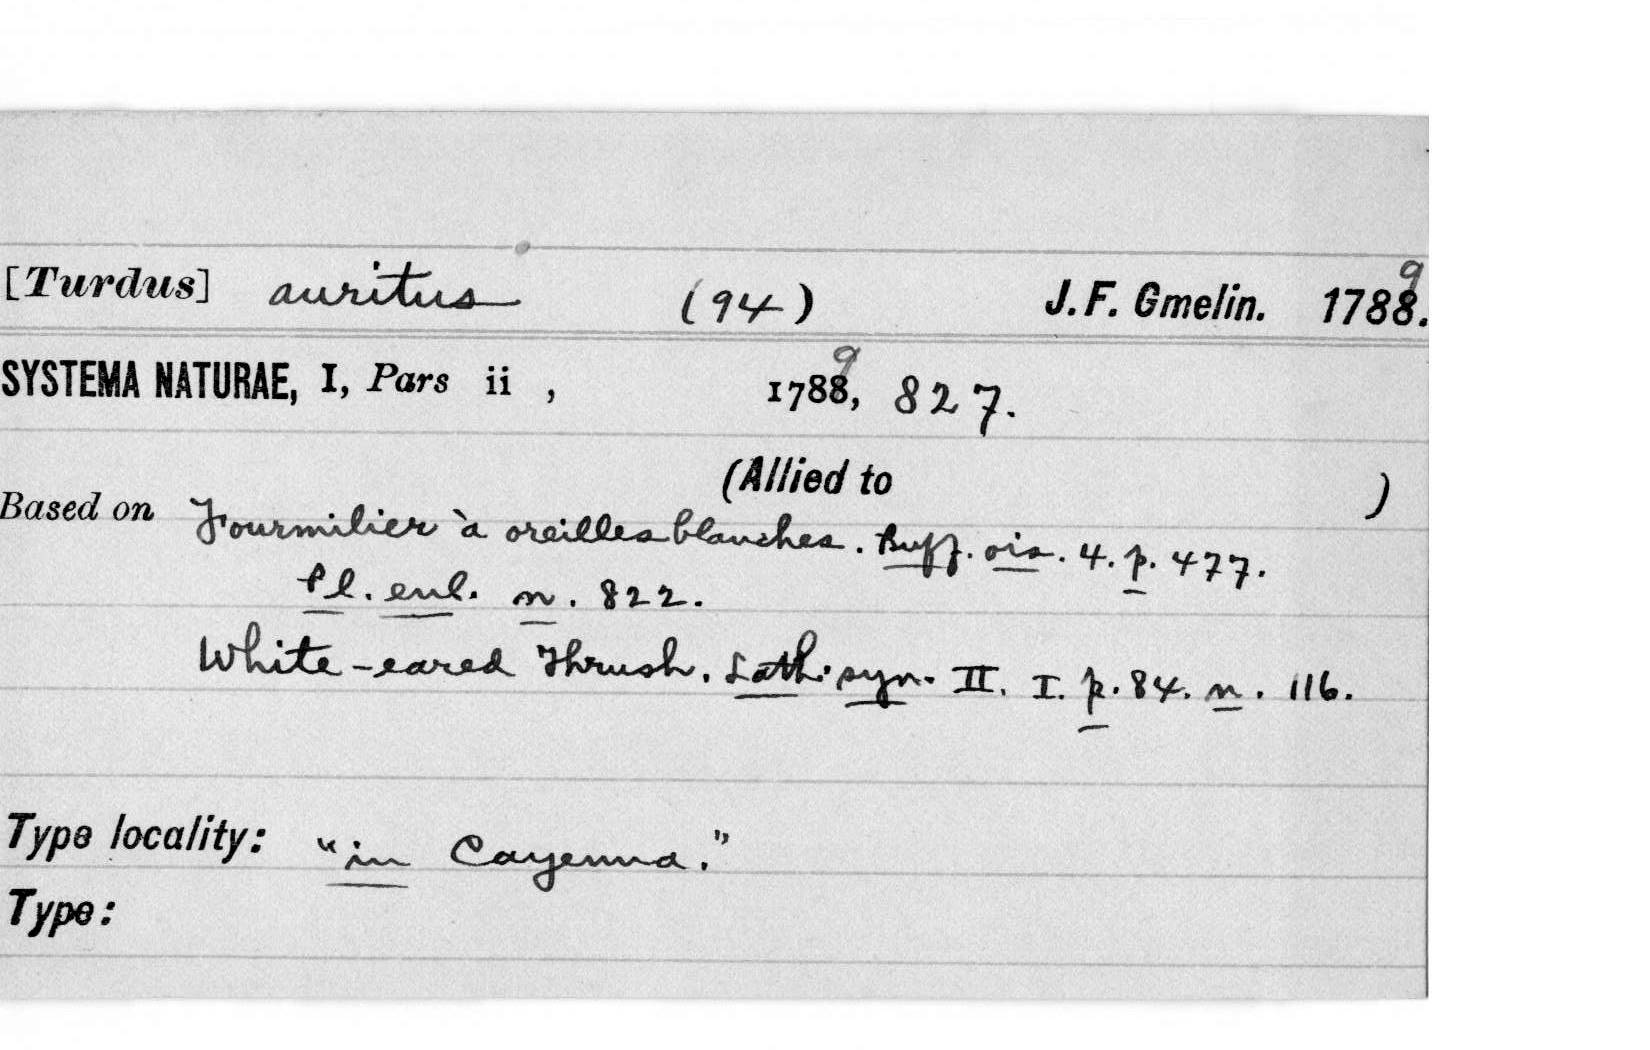 [Turdus] auritus (94) J. F. Gmelin. 1788. 9
SYSTEMA NATURAE, I, Pars ii , 1788, 9 827.
(Allied to )
Based on Fourmilier à oreilles blanches. Buff. ois. 4. p. 477.
Pl. enl. n. 822.
White-eared Thrush. Lath. syn. II. I. p. 84. n. 116.
Type locality: "in Cayenna."
Type: